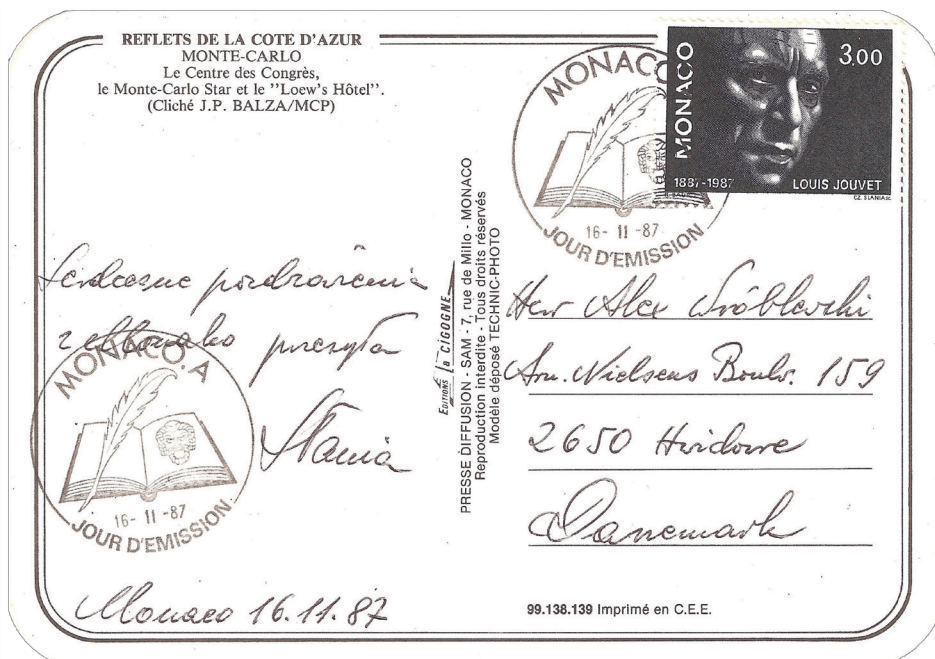 REFLETS DE LA COTE D'AZUR
MONTE-CARLO
Le Centre des Congrès,
le Monte-Carlo Star et le "Loew's Hôtel".
(Cliché J.P. BALZA/MCP)
MONACO
16-11-87
JOUR D'EMISSION
MONACO
3,00
1887-1987
LOUIS JOUVET
CZ. SLANIA SC
Serdeczne pozdrowienia
przesyła
Stania
MONACO.A
16-11-87
JOUR D'EMISSION
Monaco 16.11.87
EDITIONS la CIGOGNE
PRESSE DIFFUSION - SAM - 7, rue de Millo - MONACO
Reproduction interdite - Tous droits réservés
Modèle déposé TECHNIC-PHOTO
Herr Alex Wróblewski
Arn. Nielsens Boulv. 159
2650 Hvidovre
Danemark
99.138.139 Imprimé en C.E.E.